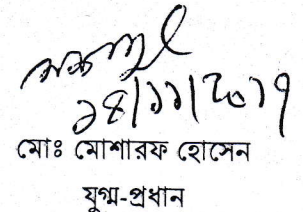 ১৪/১১/২০১৭
মোঃ মোশারফ হোসেন
যুগ্ম-প্রধান